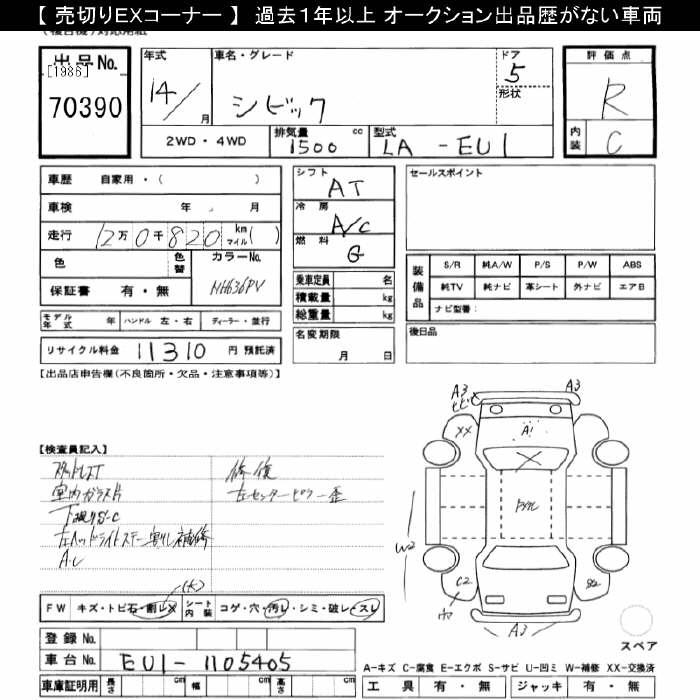 【 売切りEXコーナー 】 過去１年以上 オークション出品歴がない車両
出品No. 年式 車名・グレード ドア 評価点
[1986] 14/ 月 シビック 5 R
70390 形状 内装 C
2WD・4WD 排気量 1500 cc 型式 LA-EU1
車歴 自家用・( ) シフト AT セールスポイント
車検 年 月 冷房 A/C
走行 12万0千820 km マイル( ) 燃料 G
色 色替 カラーNo. NH636PV 装備品 S/R 純A/W P/S P/W ABS
保証書 有・無 乗車定員 名 純TV 純ナビ 革シート 外ナビ エアB
積載量 kg ナビ型番:
モデル年式 年 ハンドル 左・右 ディーラー・並行 総重量 kg
リサイクル料金 11310 円 預託済 名変期限 月 日 後日品
【出品店申告欄(不良箇所・欠品・注意事項等)】
A3 A3
ヒビ
XX A1
【検査員記入】
修復
室内ガラス片 左センターピラー歪
下廻りS・C
左ヘッドライトステー割れ補修
W2
C2 S2
A3
(大)
FW キズ・トビ石・割レX シート内装 コゲ・穴・汚レ・シミ・破レ・スレ
登録No. スペア
車台No. EU1-1105405 A-キズ C-腐食 E-エクボ S-サビ U-凹ミ W-補修 XX-交換済
車庫証明用 長さ cm 幅 cm 高さ cm 工具 有・無 ジャッキ 有・無